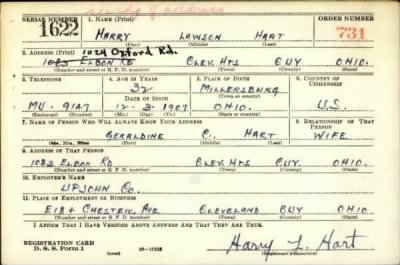 see chg of address
SERIAL NUMBER 1. NAME (Print) ORDER NUMBER
1622 HARRY LAWSON HART 731
(First) (Middle) (Last)
2. ADDRESS (Print) 1024 Oxford Rd.
1083 ELBON RD CLEV. HTS CUY OHIO.
(Number and street or R. F. D. number) (Town) (County) (State)
3. TELEPHONE 4. AGE IN YEARS 5. PLACE OF BIRTH 6. COUNTRY OF CITIZENSHIP
32 MILLERSBURG
DATE OF BIRTH (Town or county)
MU-9147 12-3-1907 OHIO. U.S.
(Exchange) (Number) (Mo.) (Day) (Yr.) (State or country)
7. NAME OF PERSON WHO WILL ALWAYS KNOW YOUR ADDRESS 8. RELATIONSHIP OF THAT PERSON
GERALDINE C. HART WIFE
(Mr., Mrs., Miss) (First) (Middle) (Last)
9. ADDRESS OF THAT PERSON
1083 ELBON RD CLEV. HTS CUY. OHIO.
(Number and street or R. F. D. number) (Town) (County) (State)
10. EMPLOYER'S NAME
UPJOHN CO.
11. PLACE OF EMPLOYMENT OR BUSINESS
E18 & CHESTER AVE CLEVELAND CUY OHIO
(Number and street or R. F. D. number) (Town) (County) (State)
I AFFIRM THAT I HAVE VERIFIED ABOVE ANSWERS AND THAT THEY ARE TRUE.
REGISTRATION CARD
D. S. S. Form 1
(over) 16—17105
Harry L. Hart
(Registrant's signature)